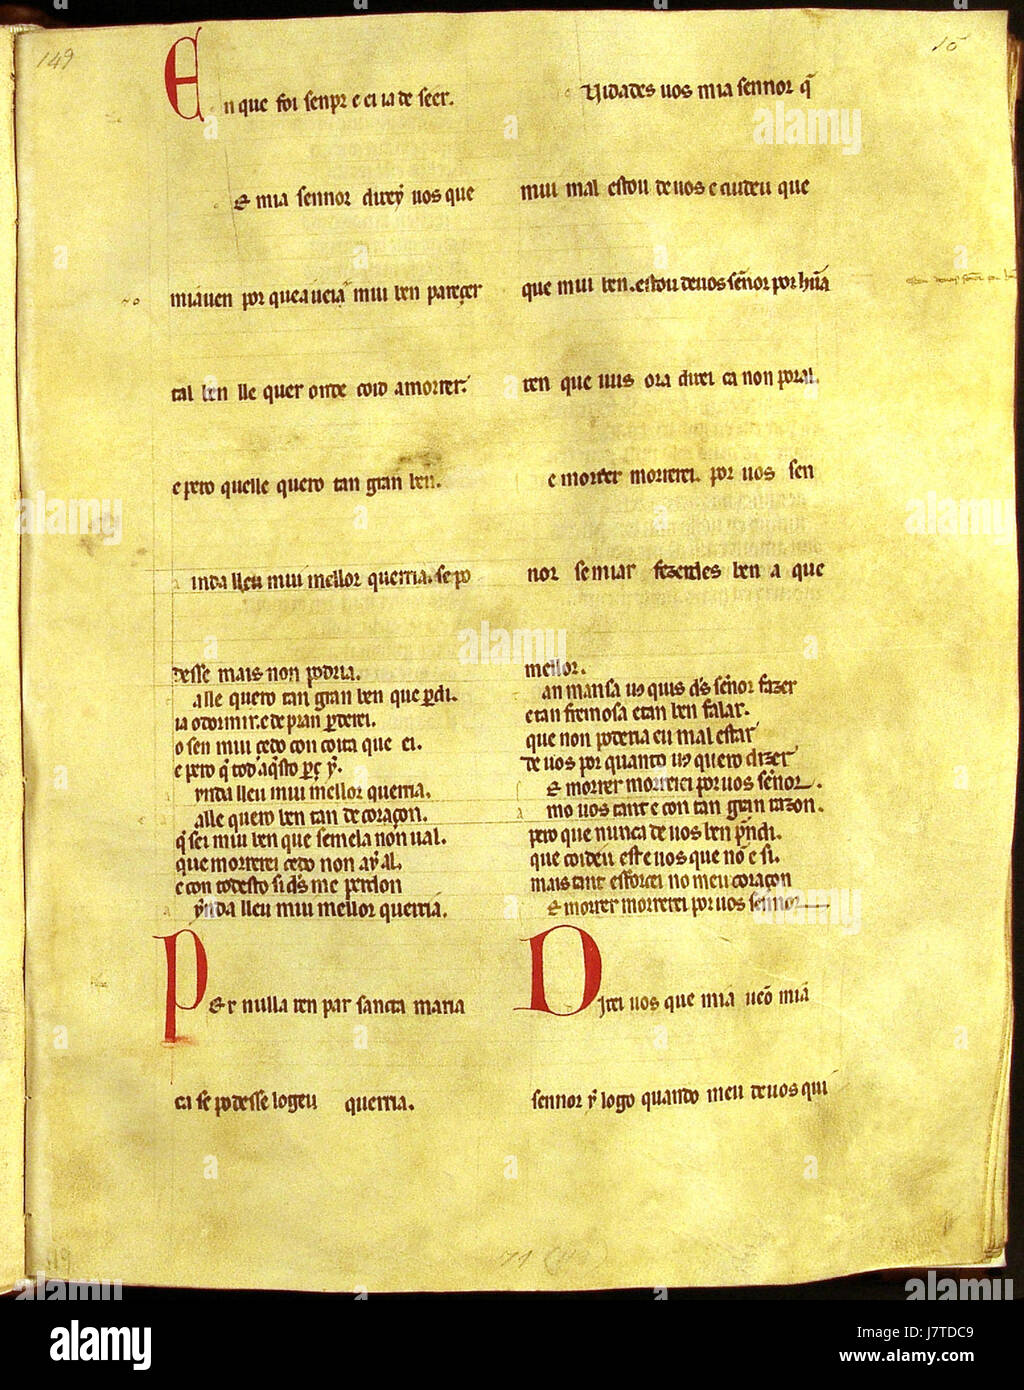 149
15
En que foi senpr e ei ia de seer.
E mia sennor direy uos que
miauen por que aueia muu ben pareçer
tal ben lle quer onde coid a morrer.
e pero quelle quero tan gran ben.
inda lleu muu mellor querria. se po
desse mais non podria.
alle quero tan gran ben que perdi.
ia o dormir. e de pran perderei.
o sen muu çedo con coita que ei.
e pero q̃ tod aq̃sto
ynda lleu muu mellor querria.
alle quero ben tan de coraçon.
q̃ sei muu ben que semela non ual.
que morrerei çedo non ay al.
e con todesto si d̃s me perdon
ynda lleu muu mellor querria.
Per nulla ren par sancta maria
ca se podesse logeu querria.
Uidades uos mia sennor q̃
muu mal estou de uos e cuideu que
que muu ben. estou de uos señor por hũa
ren que uus ora direi ca non por al.
e morrer morrerei. por uos sen
nor se miar fezerdes ben a que
mellor.
an mansa u9 quis d̃s señor fazer
e tan fremosa e tan ben falar.
que non poderia eu mal estar
de uos por quanto u9 quero dizer
E morrer morrerei por uos señor.
mo uos tant e con tan gran razon.
pero que nunca de uos ben prendi.
que coideu est e uos que nõ e si.
mais tant esforcei no meu coraçon
E morrer morrerei por uos sennor
Direi uos que mia ueõ mia
sennor y logo quando meu de uos qui
alamy
Image ID: J7TDC9
www.alamy.com